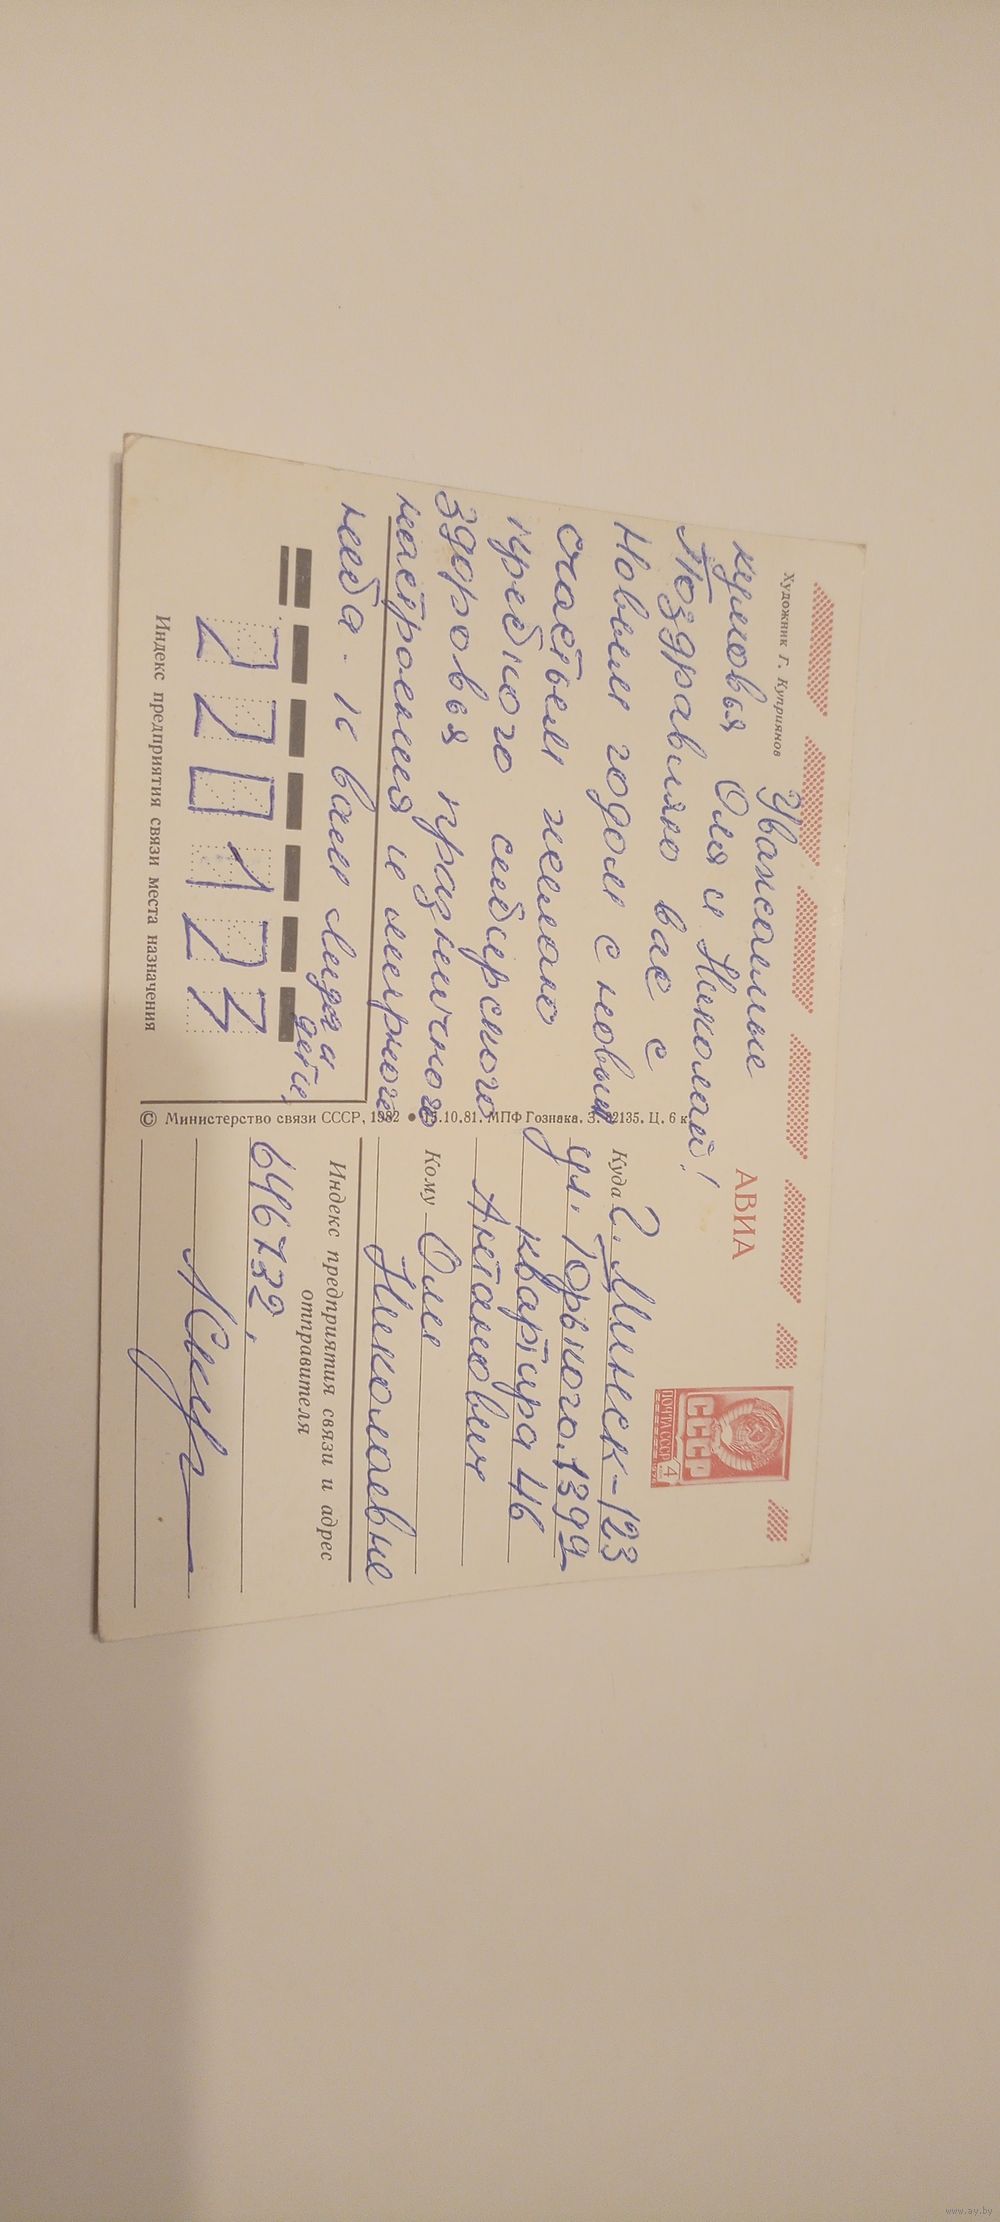 Художник Г. Куприянов
Уважаемые
кумовья Оля и Николай!
Поздравляю вас с
Новым годом с новым
счастьем желаю
крепкого сибирского
здоровья праздничного
настроения и мирного
неба. к вам Лида и
дети,
Индекс предприятия связи места назначения
© Министерство связи СССР, 1982 ● 15.10.81. МПФ Гознака. З. 82135. Ц. 6 к.
АВИА
ПОЧТА СССР 4
СССР
Куда г. Минск-123
ул. Горького. 139д
квартира 46
Антанович
Кому Оле
Николаевне
Индекс предприятия связи и адрес
отправителя
646732,
www.ay.by